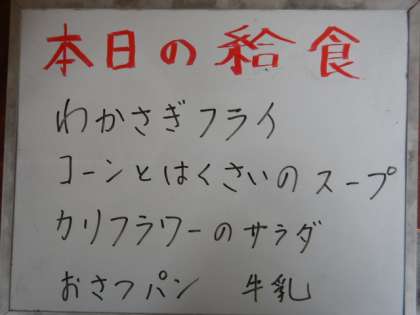 本日の給食
わかさぎフライ
コーンとはくさいのスープ
カリフラワーのサラダ
おさつパン 牛乳